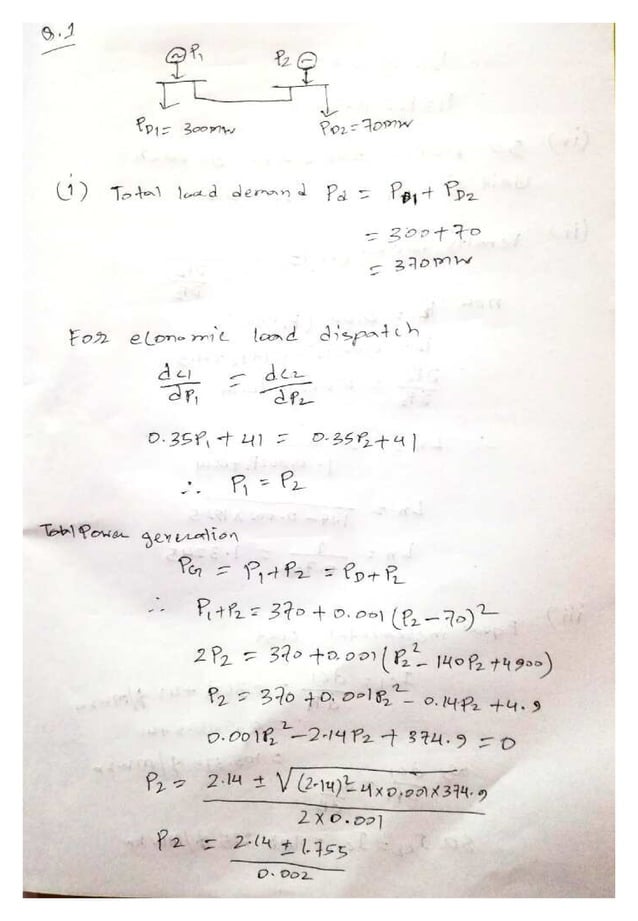 Q.1
P1 P2
PD1 = 300MW PD2 = 70MW
(i) Total load demand Pd = PD1 + PD2
= 300+70
= 370MW
For economic load dispatch
dc1/dP1 = dc2/dP2
0.35P1 + 41 = 0.35P2+41
∴ P1 = P2
Total Power generation
PG = P1+P2 = PD+PL
∴ P1+P2 = 370 + 0.001 (P2-70)²
2P2 = 370 +0.001 (P2² - 140P2 +4900)
P2 = 370 +0.001P2² - 0.14P2 +4.9
0.001P2² - 2.14P2 + 374.9 = 0
P2 = 2.14 ± √(2.14)² - 4×0.001×374.9 / 2×0.001
P2 = 2.14 ± 1.755 / 0.002